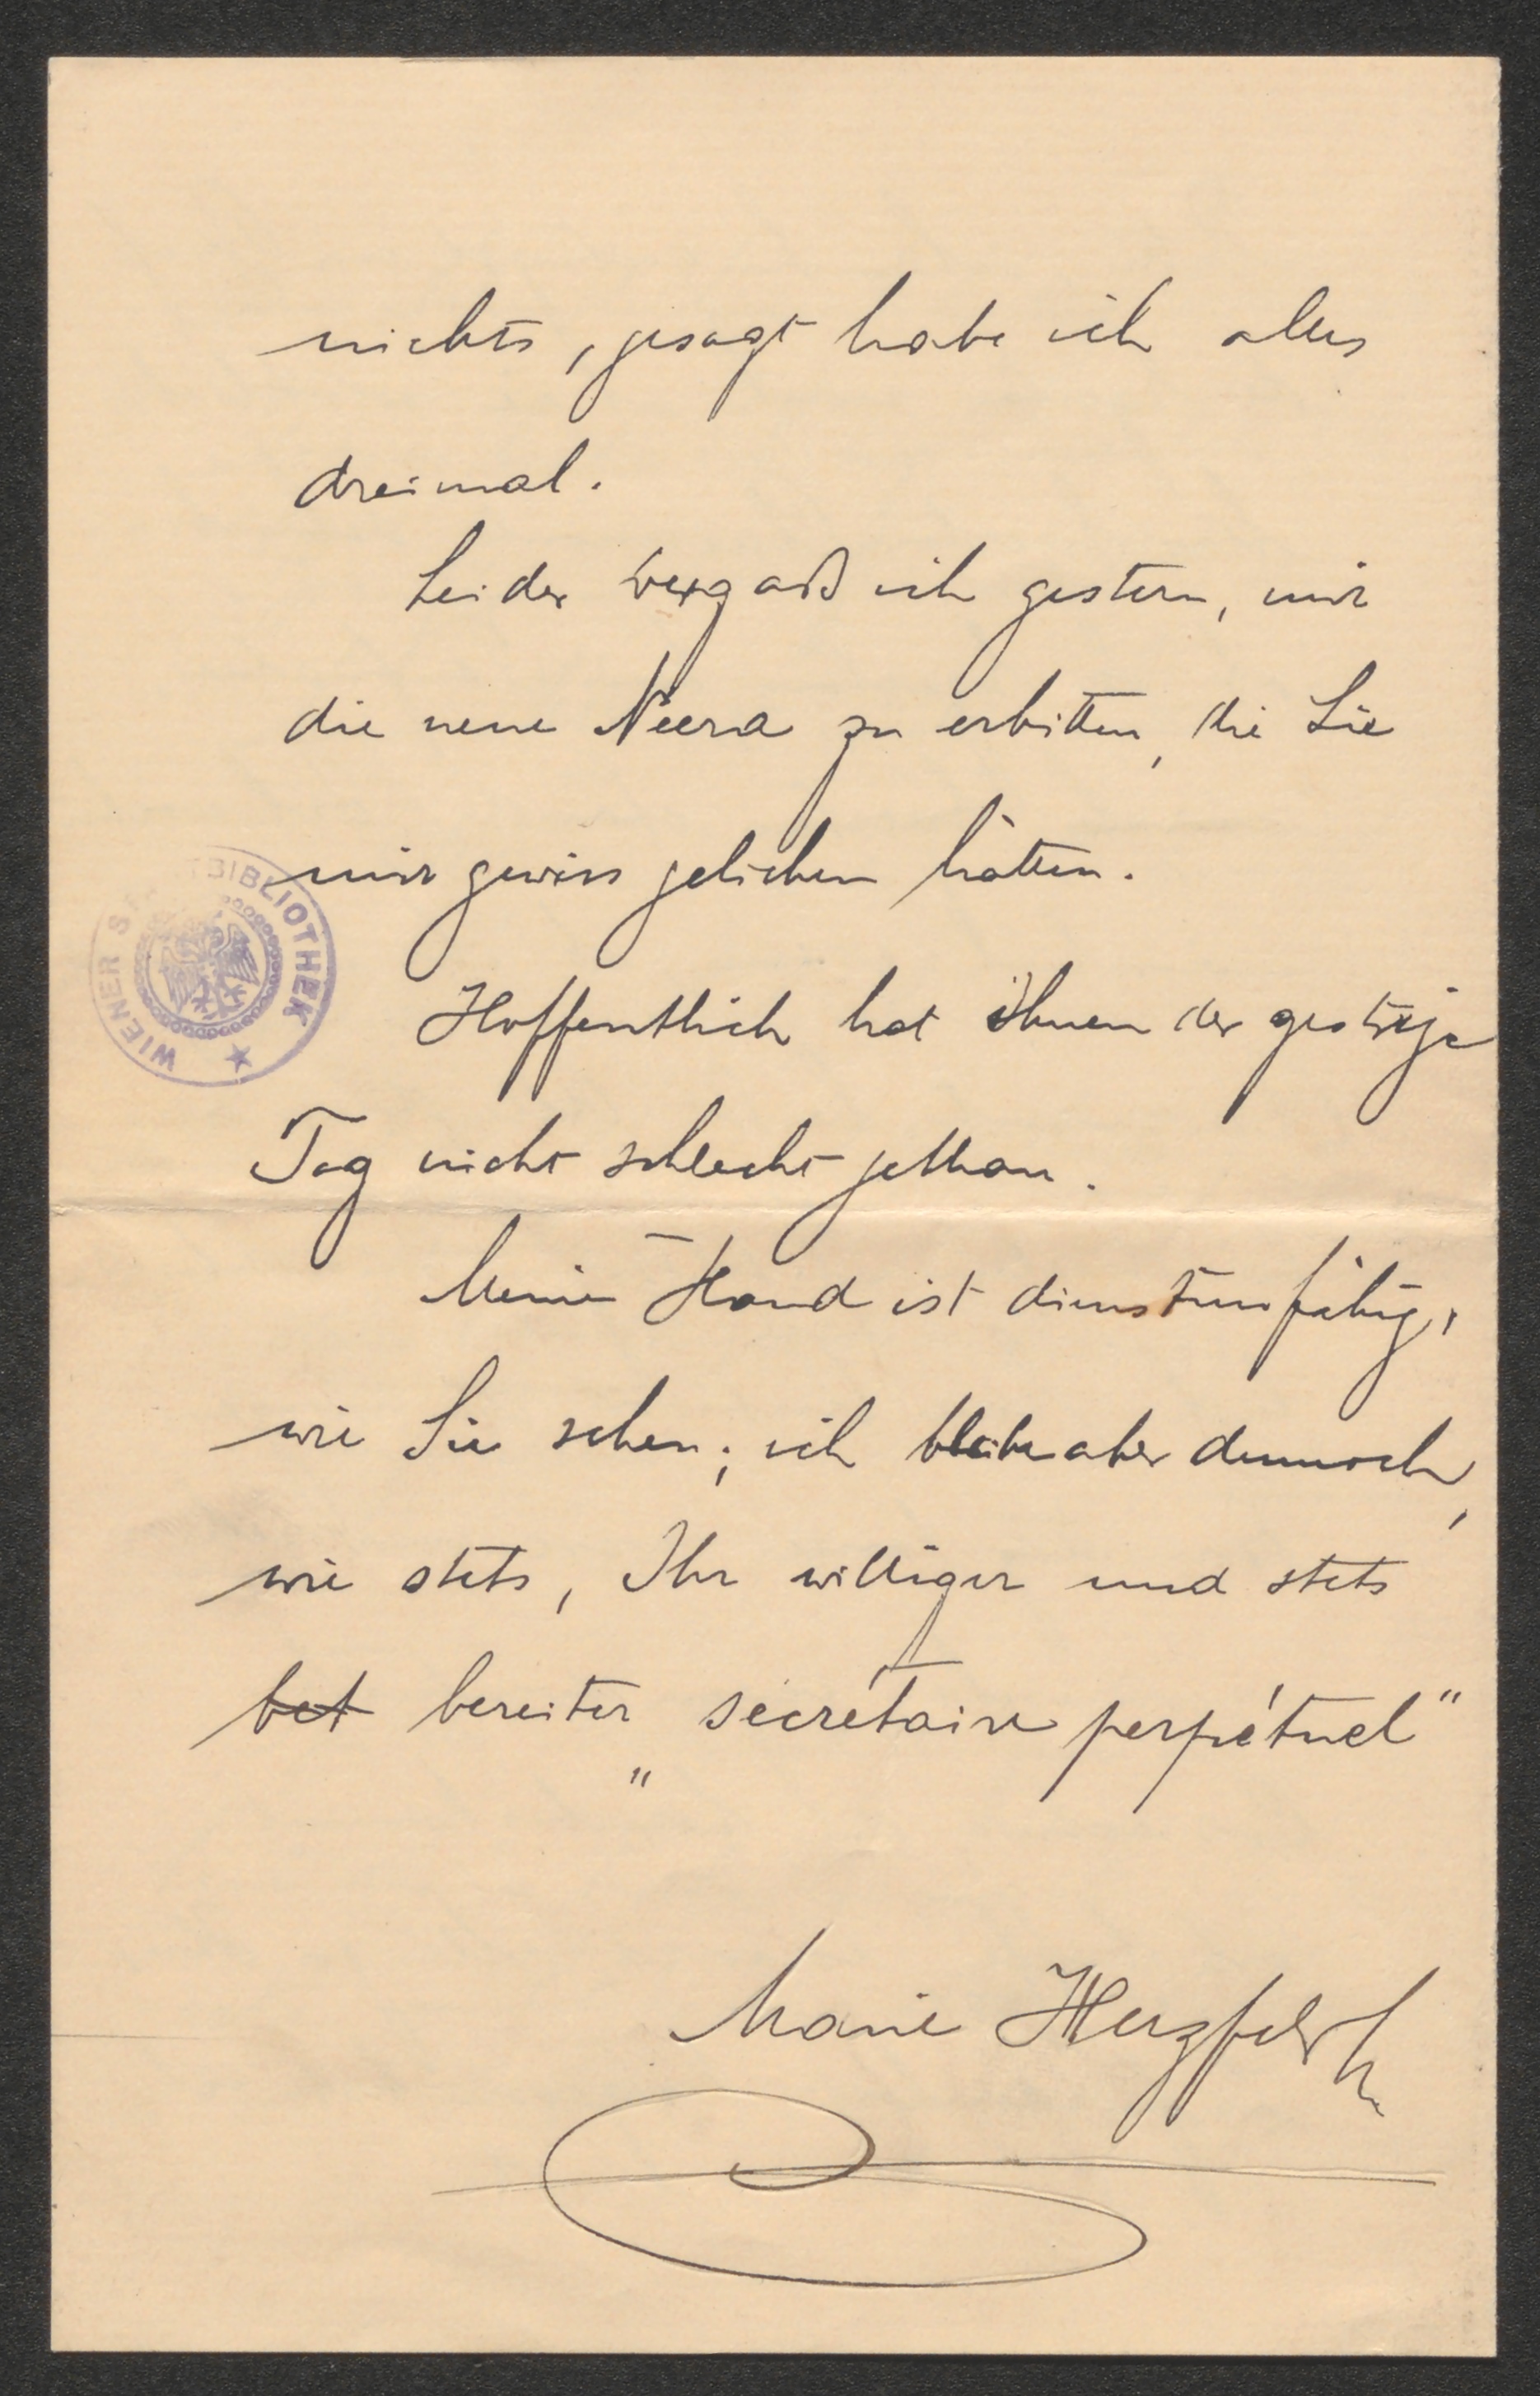 nichts, gesagt habe ich alles
dreimal.
Leider vergaß ich gestern, mir
die neue Neera zu erbitten, die Sie
mir gewiss geliehen hätten.
Hoffentlich hat Ihnen der gestrige
Tag nicht schlecht gethan.
Meine Hand ist dienstunfähig,
wie Sie sehen; ich bleibe aber dennoch,
wie stets, Ihr williger und stets
bet bereiter „secrétaire perpétuel“
Marie Herzfeld
WIENER STADTBIBLIOTHEK